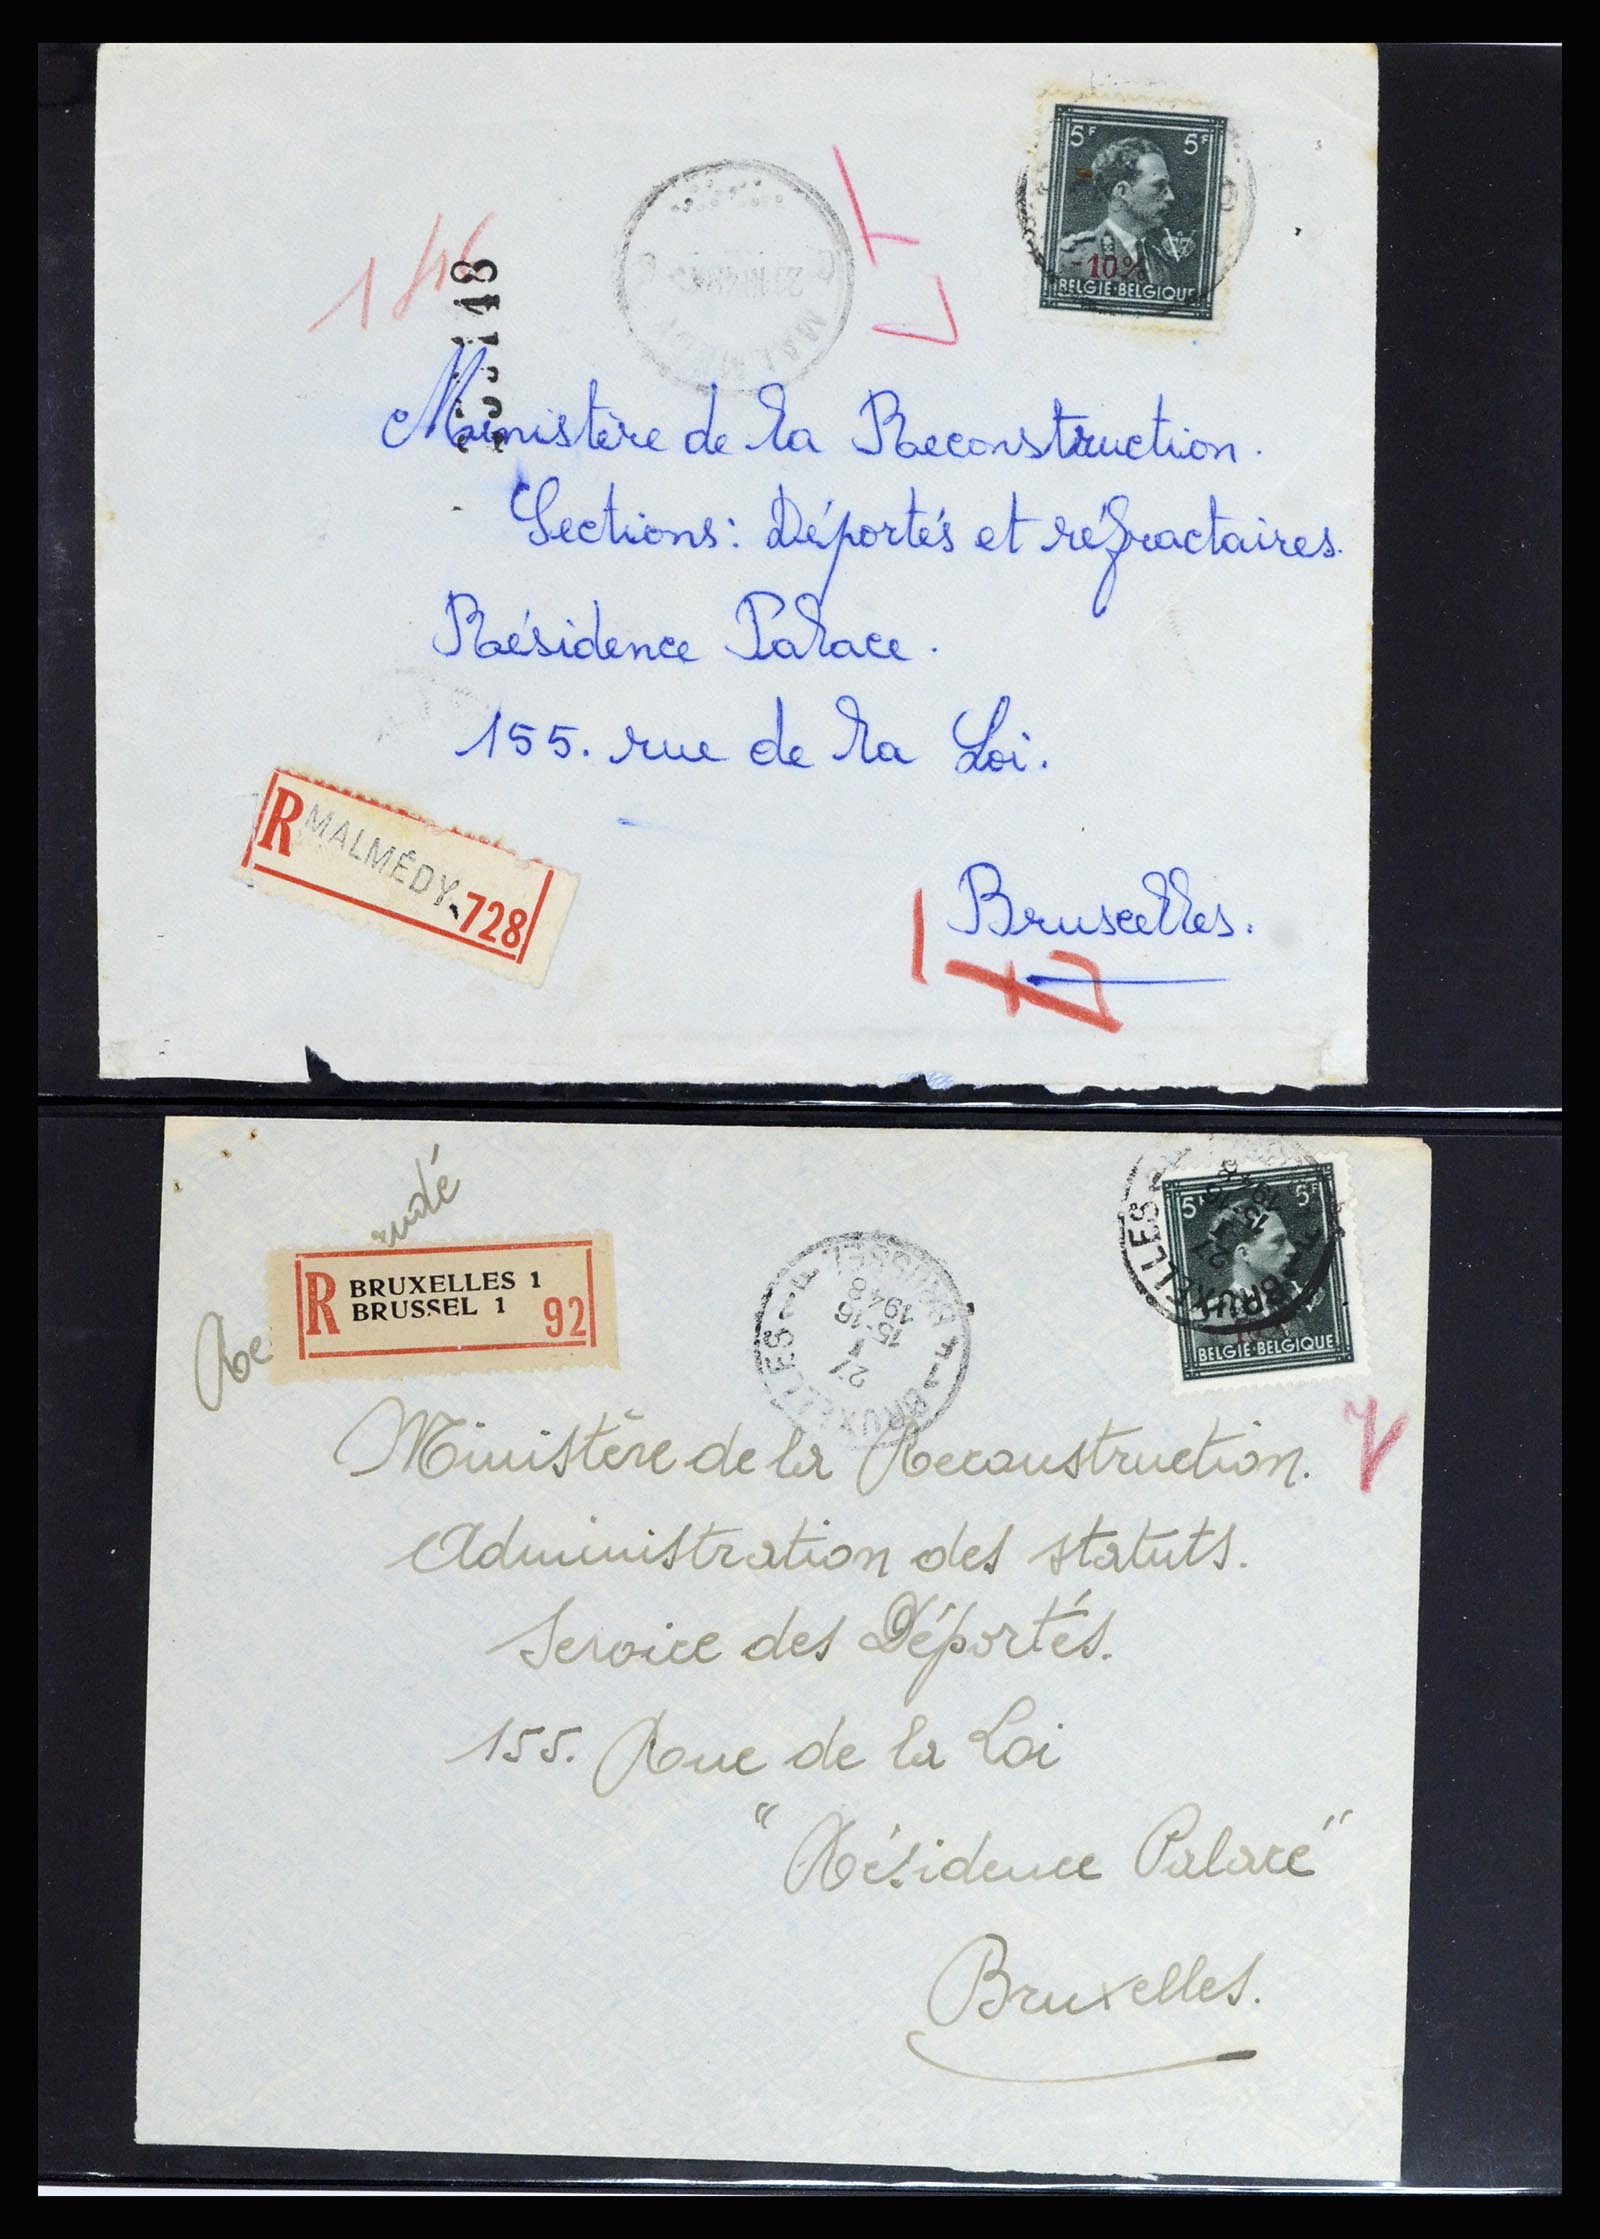 5F 5F
-10%
BELGIE·BELGIQUE
146
148
MALMEDY
Ministère de la Reconstruction.
Sections: Déportés et réfractaires.
Résidence Palace.
155. rue de la Loi.
R MALMÉDY 728
Bruxelles.
Re rudé
R BRUXELLES 1
BRUSSEL 1 92
BRUXELLES BRUSSEL
27 1
15-16
1948
5F 5F
BRUXELLES
BELGIE·BELGIQUE
Ministère de la Reconstruction.
Administration des statuts.
Service des Déportés.
155. Rue de la Loi
"Résidence Palace"
Bruxelles.